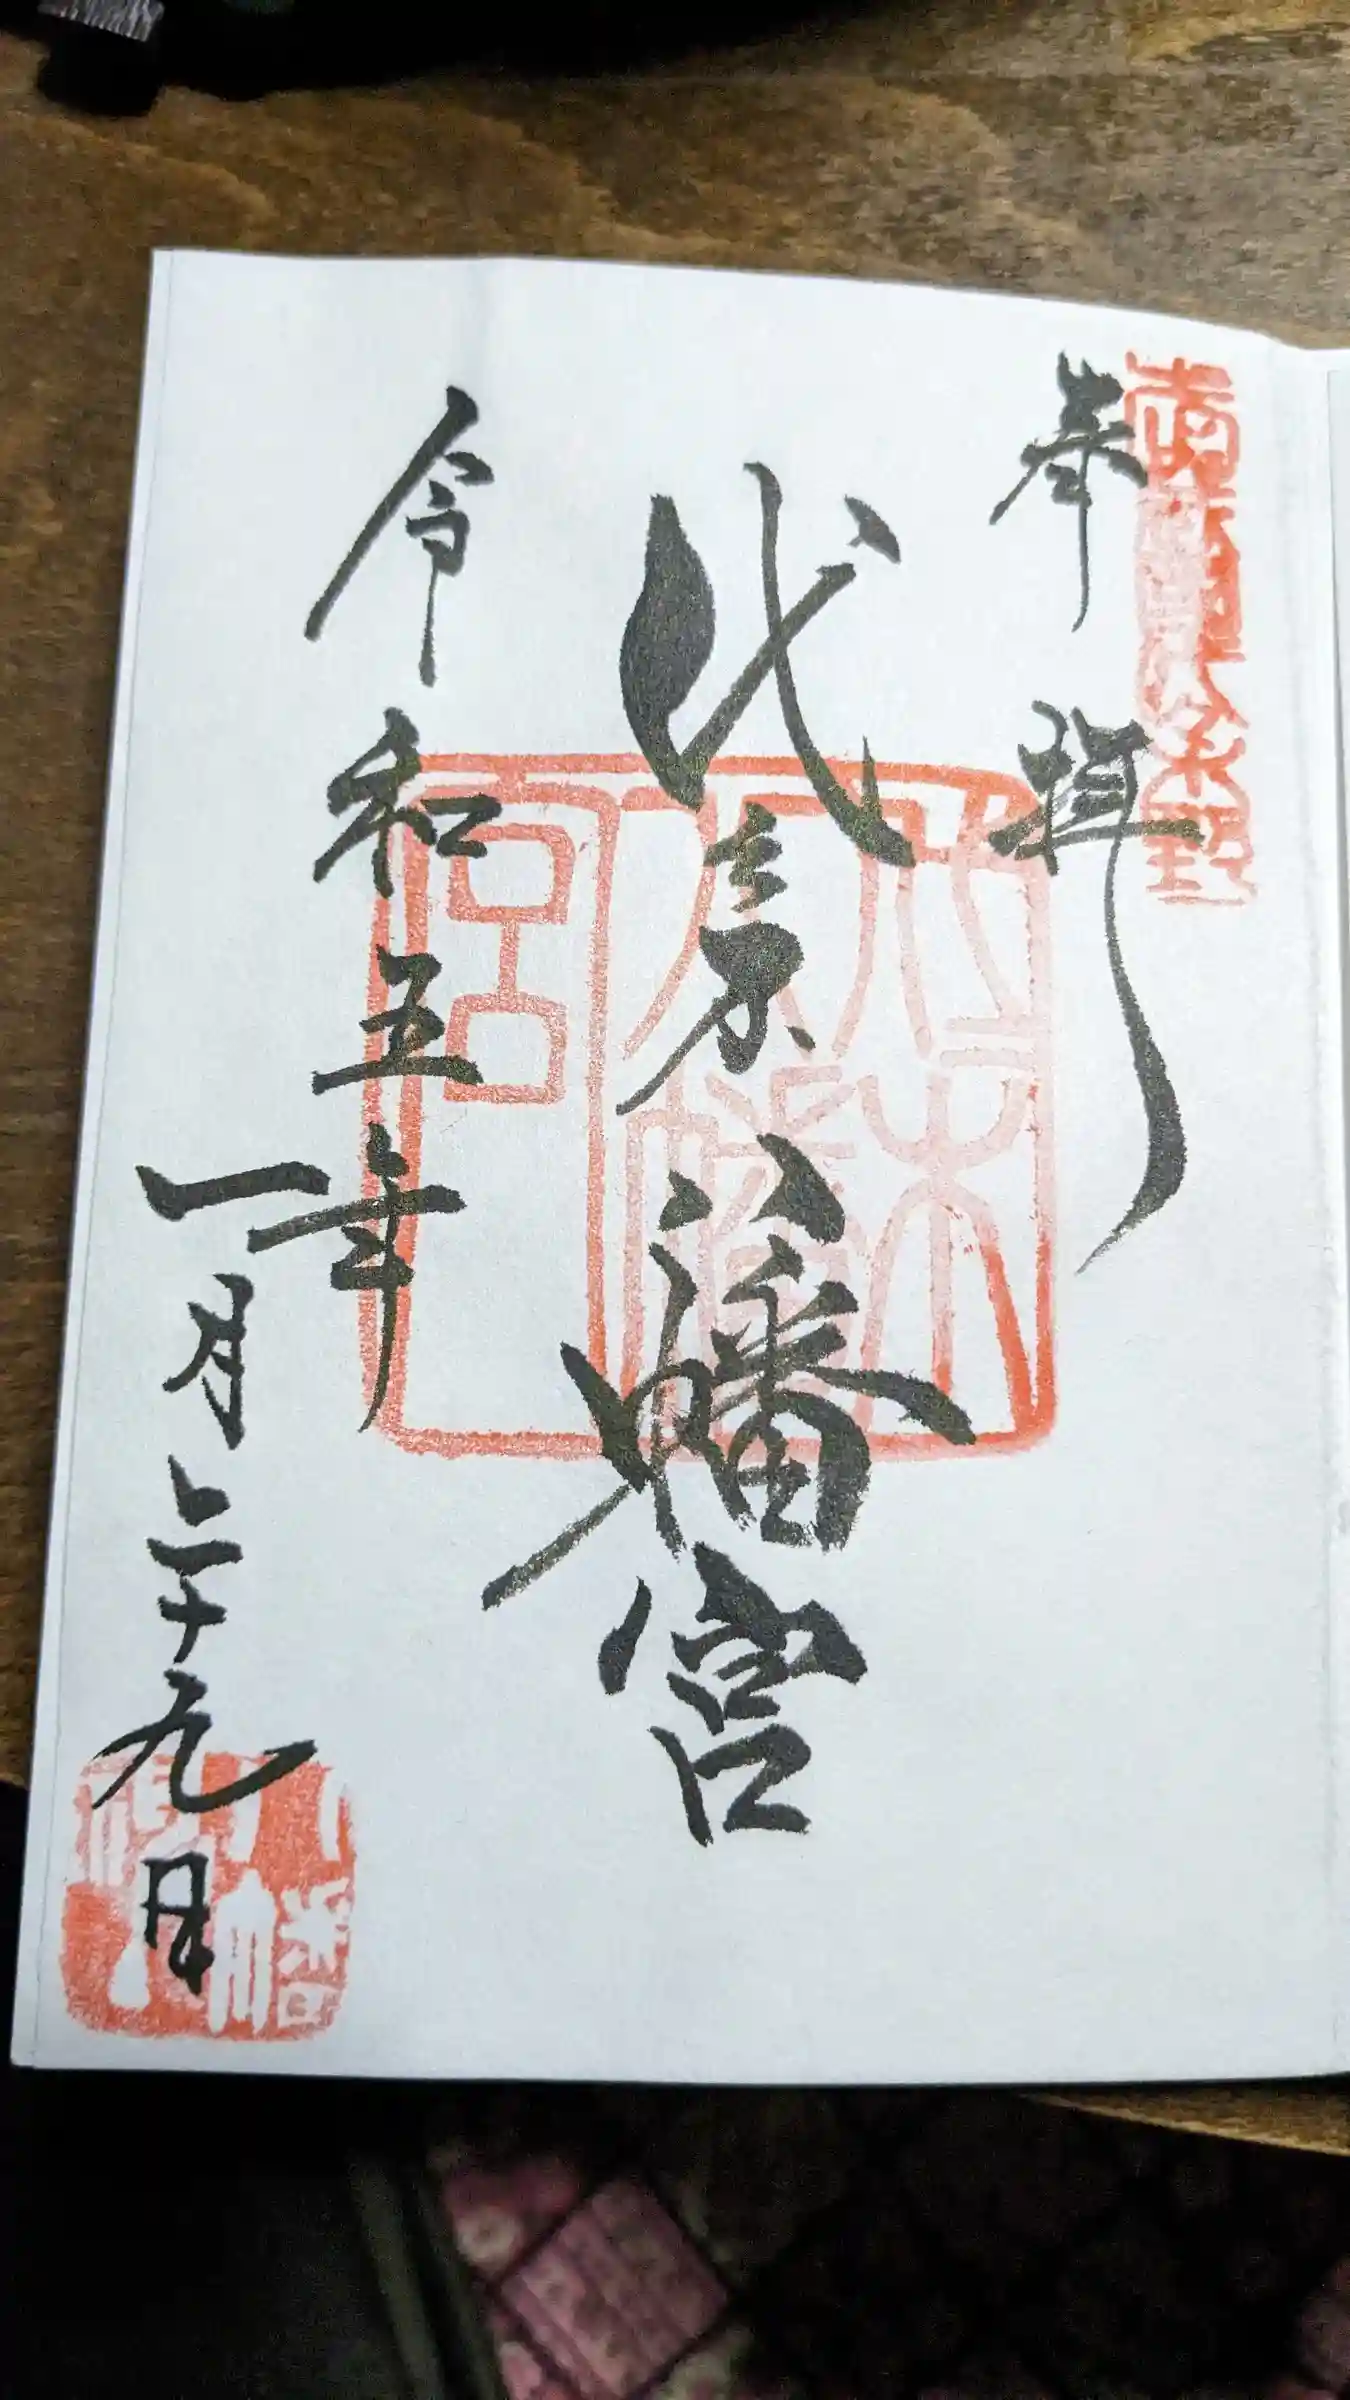 奉拝
代々木八幡宮
令和五年
一月二十九日
代々木八幡宮